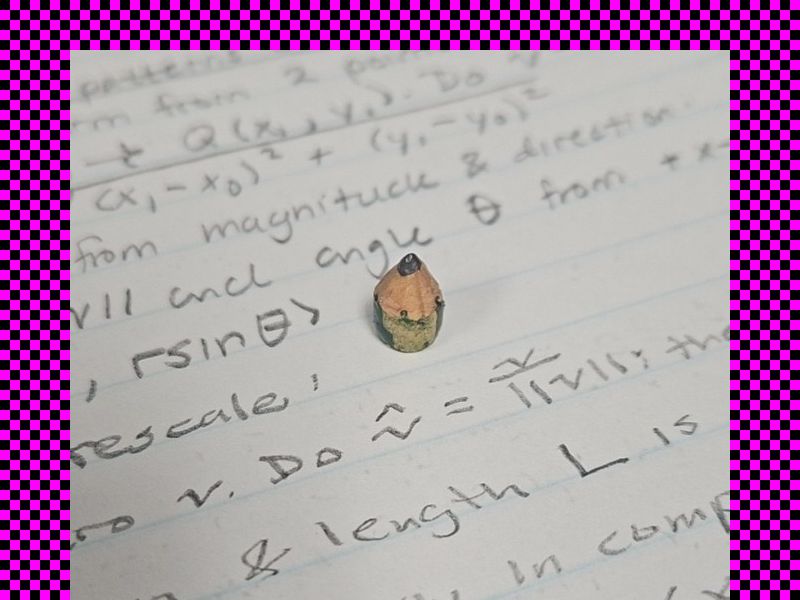 patterns
rm from 2 poin
Q(x₁, y₁). Do v
(x₁-x₀)² + (y₁-y₀)²
from magnituck & direction.
v|| and angle θ from +x-
, rsinθ>
rescale;
v. Do v̂ = v/||v||; the
& length L is
in comp